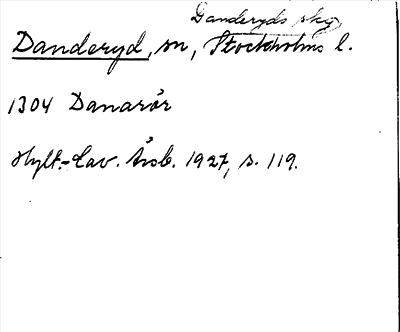 Danderyds skg
Danderyd, sn, Stockholms l.
1304 Danarør
Hylt.-Cav. Årsb. 1927, s. 119.